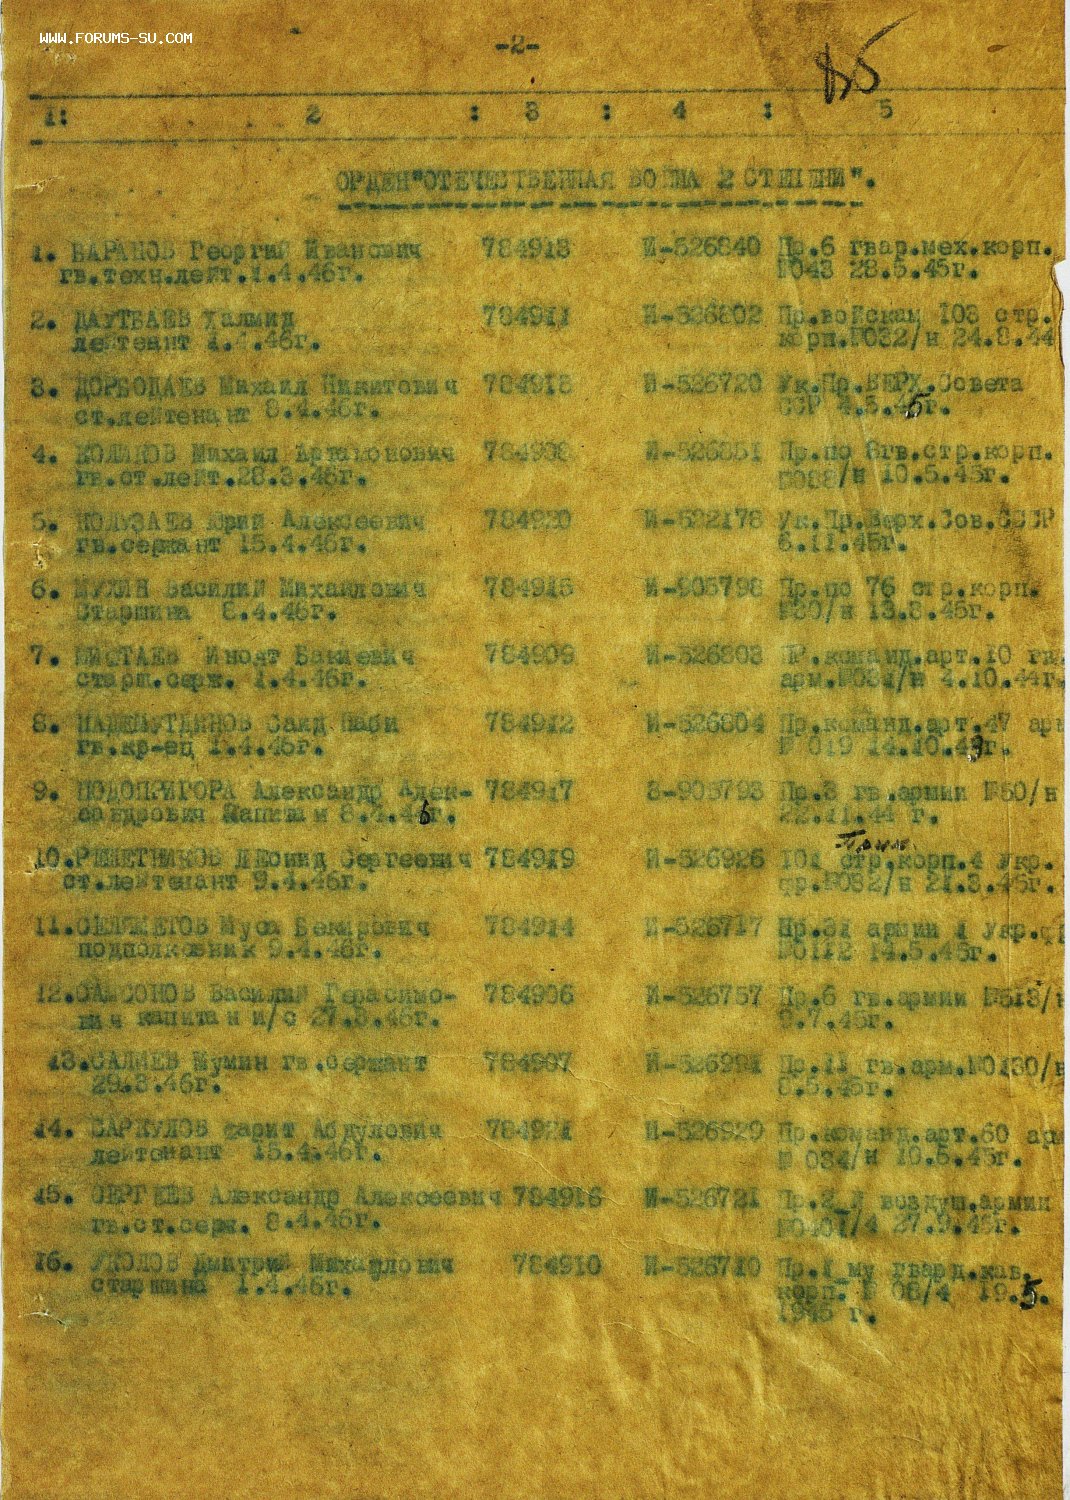 WWW.FORUMS-SU.COM
-2-
85
1: 2 : 3 : 4 : 5
ОРДЕН"ОТЕЧЕСТВЕННАЯ ВОЙНА 2 СТЕПЕНИ".
1. БАРАНОВ Георгий Иванович 784913 И-526840 Пр.6 гвар.мех.корп.
гв.техн.лейт.1.4.46г. №043 28.5.45г.
2. ДАУТБАЕВ Халмид 784911 И-526802 Пр.войскам 103 стр.
лейтенант 1.4.46г. корп.№032/н 24.8.44
3. Михаил Никитович 784918 И-526720 Ук.Пр.ВЕРХ.Совета
ст.лейтенант 8.4.46г. СССР 4.5.45г.
4. Михаил Артамонович 784908 И-526851 Пр.по 8гв.стр.корп.
гв.ст.лейт.28.3.46г. №088/н 10.5.45г.
5. Юрий Алексеевич 784920 И-522178 Ук.Пр.Верх.Сов.СССР
гв.сержант 15.4.46г. 6.11.45г.
6. МУХИН Василий Михайлович 784915 И-905798 Пр.по 76 стр.корп.
Старшина 8.4.46г. №30/н 13.3.45г.
7. Бакиевич 784909 И-526803 ПР.команд.арт.10 гв.
старш.серж. 1.4.46г. арм.№031/н 4.10.44г.
8. Саид 784912 И-526804 Пр.команд.арт.47 арм
гв.кр-ец 1.4.46г. №019 14.10.43г.
9. ПОДОПРИГОРА Александр Алек- 784917 З-905793 Пр.3 гв.армии №60/н
сандрович 8.4.46г. 22.11.44 г.
Прик.
10.РЕШЕТНИКОВ Леонид Сергеевич 784919 И-526926 101 стр,корп.4 Укр.
ст.лейтенант 9.4.46г. фр.№032/н 21.3.45г.
11.СЕЛЯМЕТОВ Муса Бекирович 784914 И-526717 Пр.31 армии 1 Укр.ф
подполковник 9.4.46г. №0112 14.5.45г.
12.САМСОНОВ Василий Герасимо- 784906 И-526757 Пр.6 гв.армии №513/н
вич капитан и/с 27.3.46г. 9.7.45г.
13.САЛИЕВ Мумин гв.сержант 784907 И-526991 Пр.11 гв.арм.№0130/н
29.3.46г. 8.5.45г.
14. САРКУЛОВ Фарит Абдулович 784921 И-526929 Пр.команд.арт.60 арм
лейтенант 15.4.46г. № 034/н 10.5.45г.
15. СЕРГЕЕВ Александр Алексеевич 784916 И-526721 Пр.2_й воздуш.армии
гв.ст.серж. 8.4.46г. 27.9.45г.
16. УКОЛОВ Дмитрий Михайлович 784910 И-526710 Пр.1_му гвард.кав.
старшина 1.4.46г. корп. № 08/4 19.5.
1945 г.